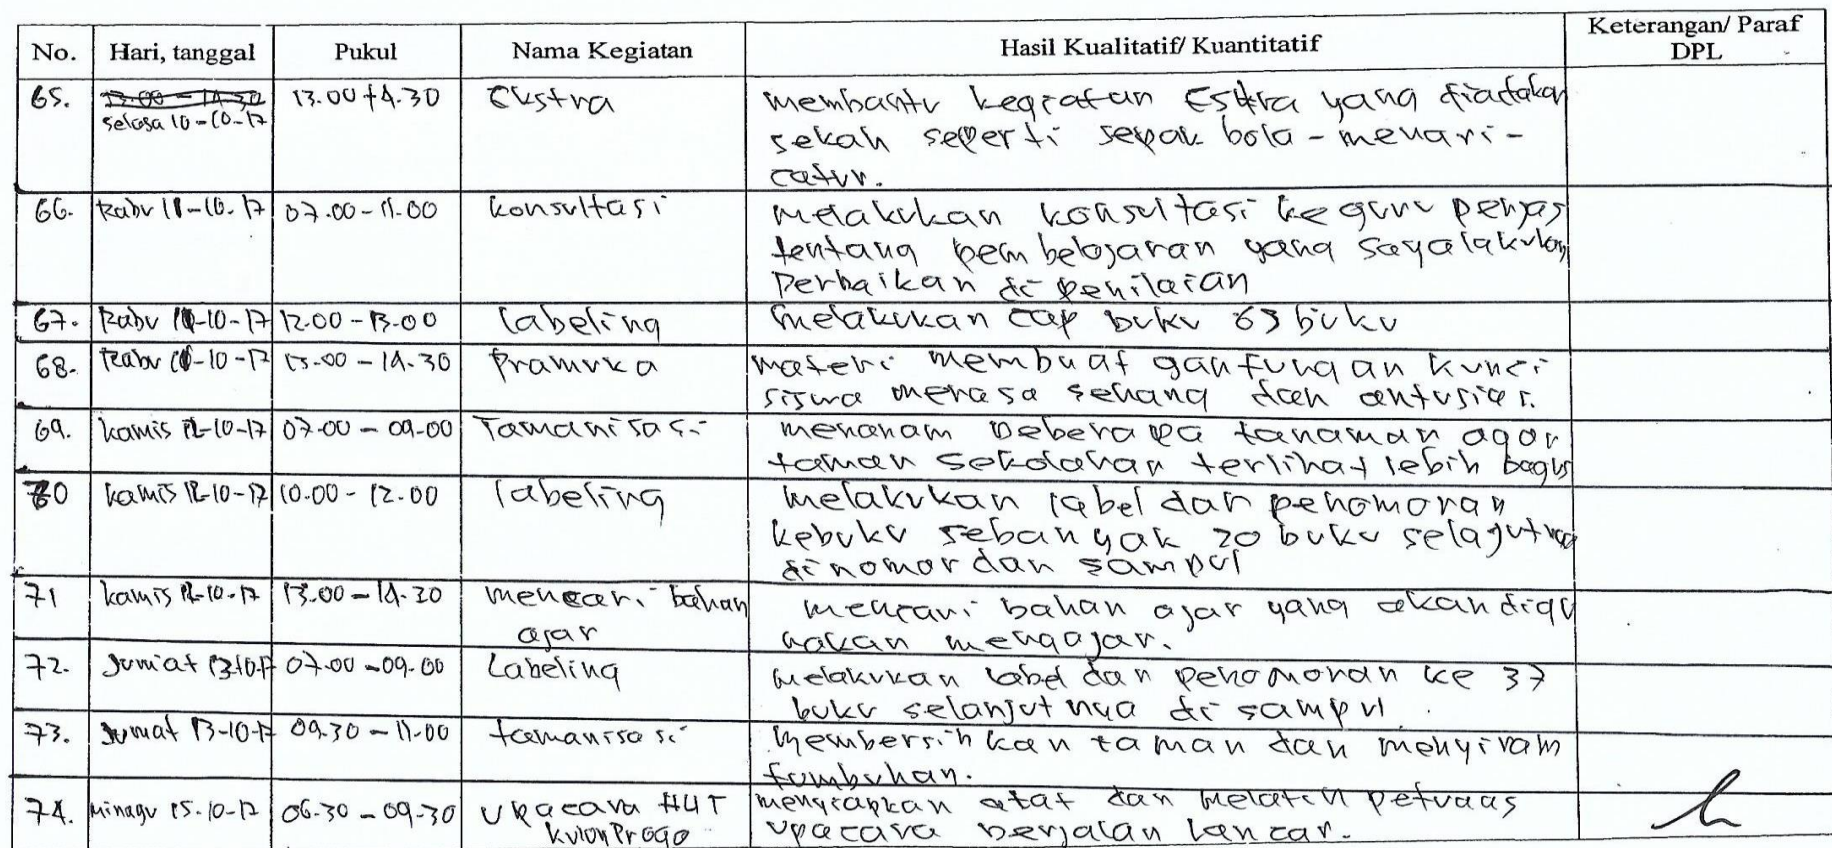 No. Hari, tanggal Pukul Nama Kegiatan Hasil Kualitatif/ Kuantitatif Keterangan/ Paraf DPL
65. 13.00 - 14.30 selasa 10-10-17 13.00 14.30 Ekstra membantu kegiatan Esktra yang diadakan
sekah seperti sepak bola - menari -
catur.
66. Rabu 11-10-17 07.00-11.00 konsultasi melakukan konsultasi ke guru penjas
tentang pembelajaran yang saya lakukan
Perbaikan di penilaian
67. Rabu 11-10-17 12.00-13.00 labeling melakukan cap buku 63 buku
68. Rabu 11-10-17 13.00-14.30 Pramuka materi membuat gantungan kunci
siswa merasa senang dan antusias.
69. kamis 12-10-17 07.00-09.00 Tamanisasi menanam beberapa tanaman agar
taman sekolahan terlihat lebih bagus
70 kamis 12-10-17 10.00-12.00 labeling melakukan label dan penomoran
kebuku sebanyak 20 buku selajutnya
dinomor dan sampul
71 kamis 12-10-17 13.00-14.30 mencari bahan mencari bahan ajar yang akan digu
ajar nakan mengajar.
72. Jum'at 13-10-17 07.00-09.00 Labeling melakukan label dan penomoran ke 37
buku selanjutnya di sampul.
73. Jumat 13-10-17 09.30-11.00 tamanisasi membersihkan taman dan menyiram
tumbuhan.
74. Minggu 15-10-17 06.30-09.30 Upacara HUT menyiapkan alat dan melatih petugas
kulon Progo upacara berjalan lancar.